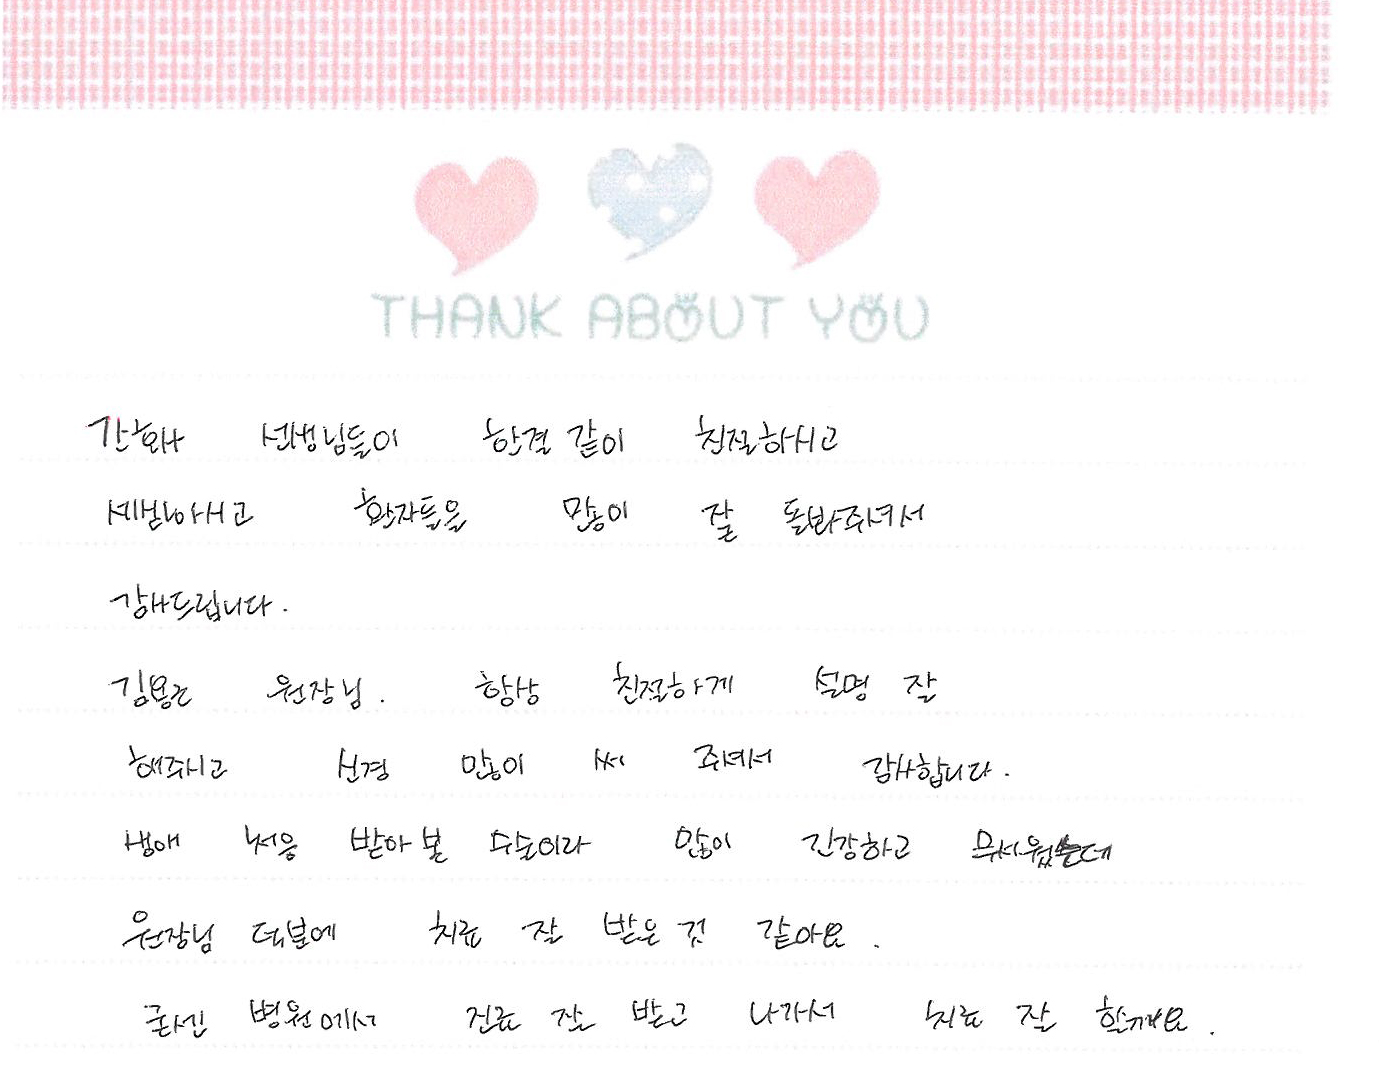 THANK ABOUT YOU
간호사 선생님들이 한결 같이 친절하시고
세심하시고 환자들을 많이 잘 돌봐주셔서
감사드립니다.
김용근 원장님. 항상 친절하게 설명 잘
해주시고 신경 많이 써 주셔서 감사합니다.
생애 처음 받아 본 수술이라 많이 긴장하고 무서웠는데
원장님 덕분에 치료 잘 받은 것 같아요.
굳센 병원에서 진료 잘 받고 나가서 치료 잘 할께요.